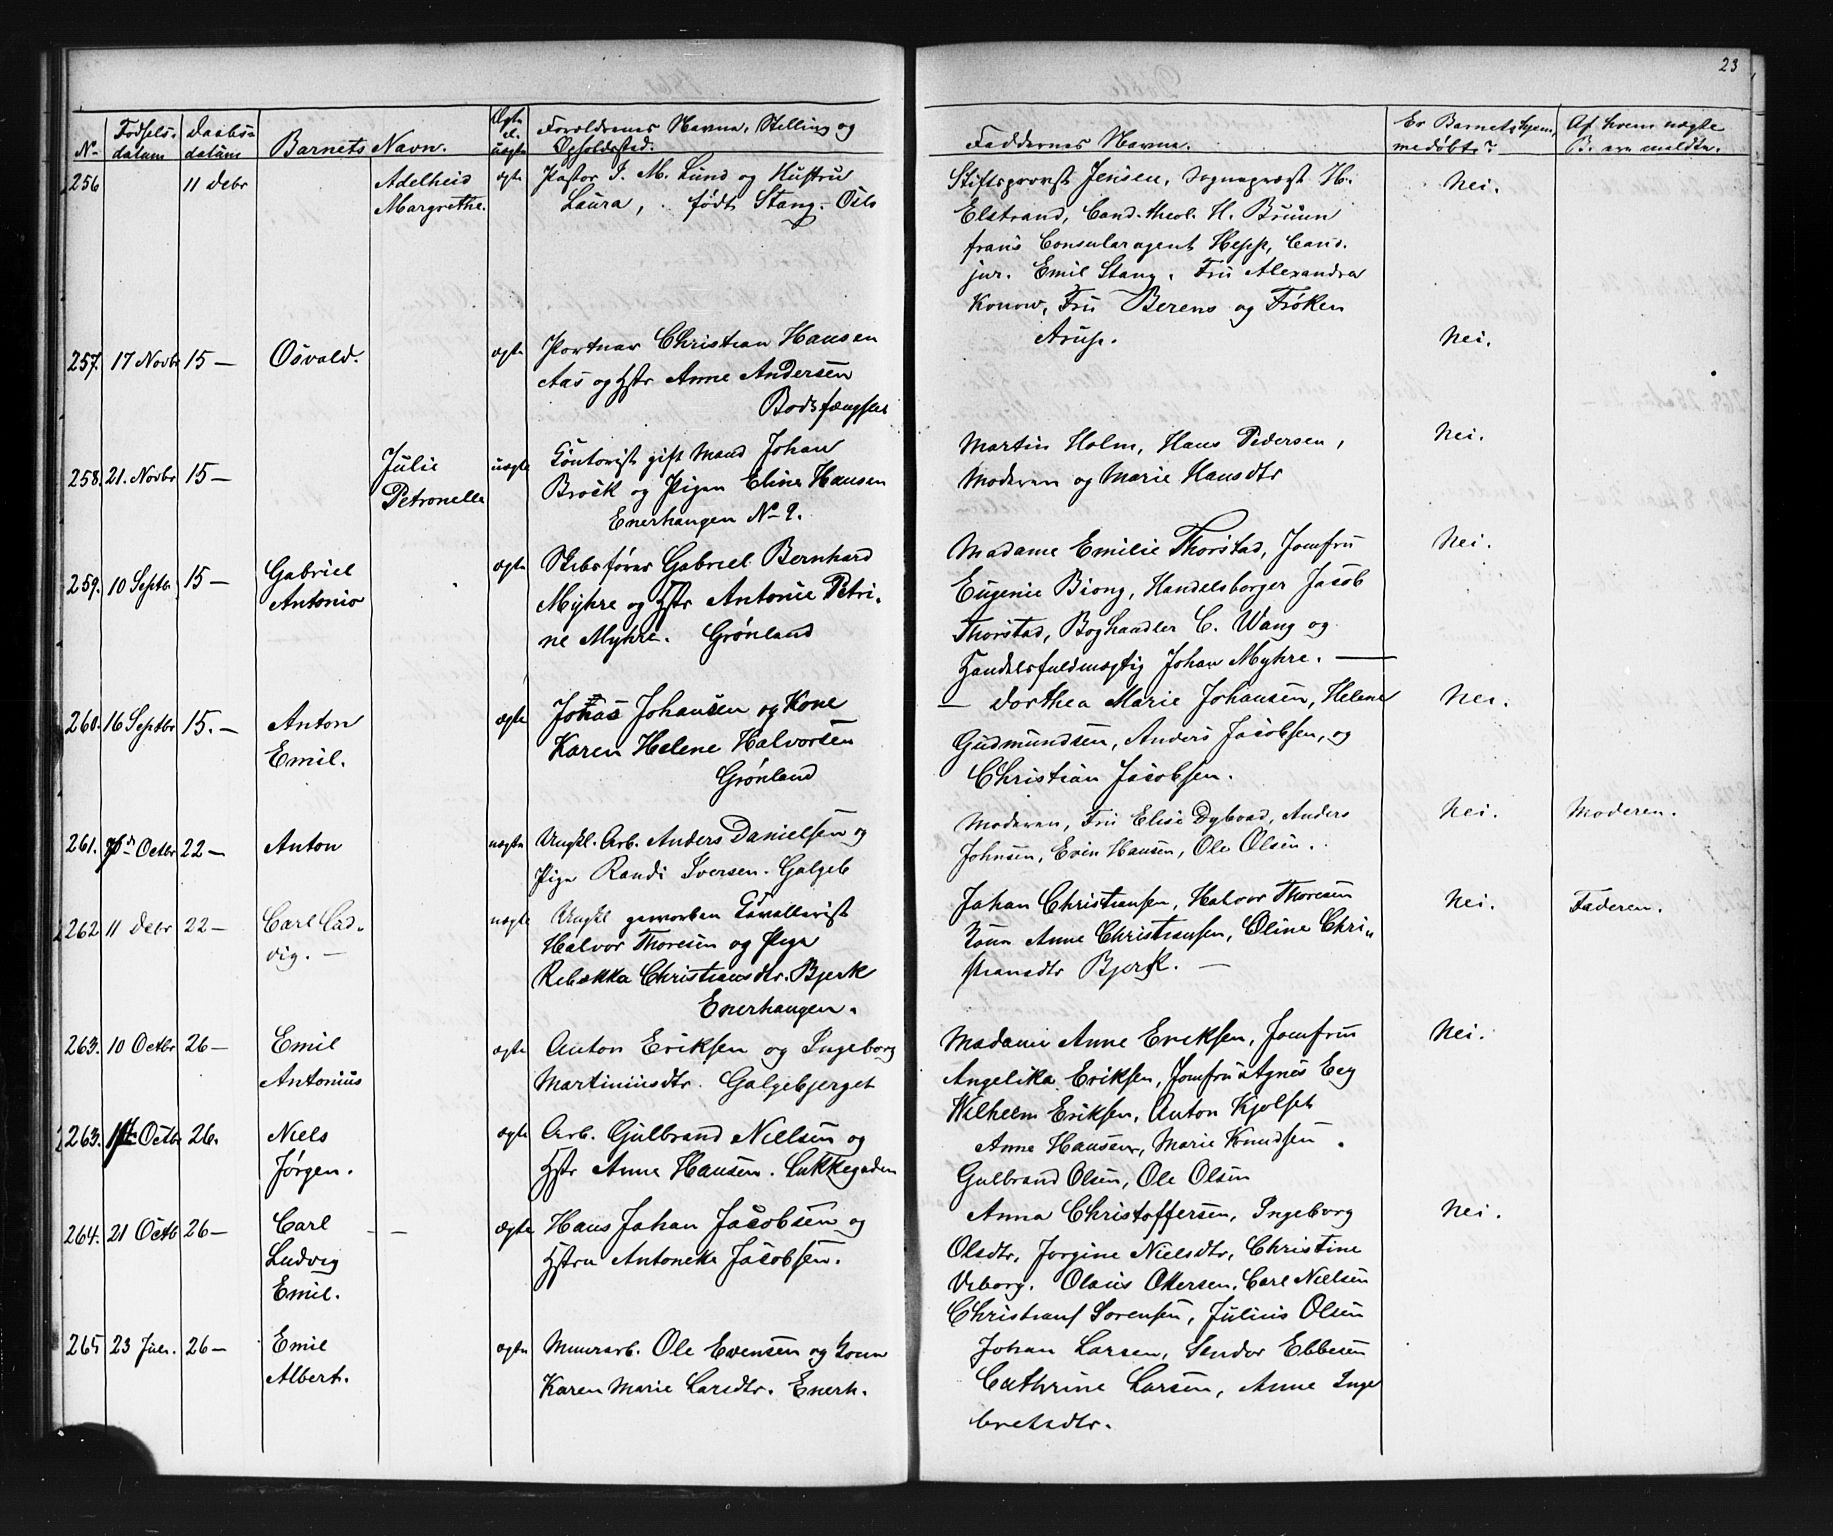 23
No Fødsels- datum Daabs- datum Barnets Navn. Ægte el. uægte Forældrenes Navne, Stilling og Opholdssted. Faddernes Navne. Er Barnet hjemmedøbt? Af hvem uægte B. ere meldte.
256 11 Debr Adelheid Margrethe. ægte
Pastor J. M. Lund og Hustru
Laura, født Stang. Oslo
Stiftsprovst Jensen, Sognepræst H.
Elstrand, Cand. theol. H. Bruun
frans Consularagent Hepp, Cand.
jur. Emil Stang. Fru Alexandra
Konow, Fru Berens og Frøken
Arup.
Nei.
257. 17 Novbr 15 — Osvald. ægte
Portner Christian Hansen
Aas og Hstr Anne Andersen
Bodsfængslet
Nei.
258. 21. Novbr 15 — Julie Petronelle uægte
Contorist gift Mand Johan
Brock og Pigen Eline Hansen
Enerhaugen No 2.
Martin Holm, Hans Pedersen,
Moderen og Marie Hansdtr
Nei.
259. 10 Septbr 15 — Gabriel Antonio ægte
Skibsfører Gabriel Bernhard
Myhre og Hstr Antonie Petri-
ne Myhre. Grønland
Madame Emilie Thorstad, Jomfru
Eugenie Biong, Handelsborger Jacob
Thorstad, Boghandler C. Wang og
Handelsfuldmægtig Johan Myhre. —
Nei.
260. 16 Septbr 15. — Anton Emil. ægte
Johansen og Kone
Karen Helene Halvorsen
Grønland
— Dorthea Marie Johansen, Helene
Gudmundsen, Anders Jacobsen, og
Christian Jacobsen.
Nei.
261. Octbr 22 — Anton uægte
Ungkl. Arb. Anders Danielsen og
Pige Randi Iversen. Galgeb
Moderen, Fru Elise Dybvad, Anders
Johnsen, Even Hansen, Ole Olsen.
Nei. Moderen.
262 11 Debr 22 — Carl Lud-
vig. — uægte
Ungkl geworben Cavallerist
Halvor Thoresen og Pige
Rebekka Christiansdtr. Bjerk
Enerhaugen.
Johan Christiansen, Halvor Thoresen
Kone Anne Christiansen, Oline Chri-
stiansdtr Bjerk. —
Nei. Faderen.
263. 10 Octbr 26 — Emil Antonius ægte
Anton Eriksen og Ingeborg
Martiniusdtr. Galgebjerget
Madame Anne Eriksen, Jomfru
Angelika Eriksen, Jomfru Agnes Eeg
Wilhelm Eriksen, Anton Kjølset
Nei.
263. Octbr 26. Niels Jørgen. ægte
Arb. Gulbrand Nielsen og
Hstr Anne Hansen. Lakkegaden
Anne Hansen, Marie Knudsen
Gulbrand Olsen, Ole Olsen
264. 21 Octb 26 — Carl Ludvig Emil. — — ægte
Hans Johan Jacobsen og
Hstru Antoneke Jacobsen.
Anna Christoffersen, Ingeborg
Olsdtr, Jorgine Nielsdtr, Christine
Viborg. Olaus Ottersen, Carl Nielsen
Christians Sørensen, Julius Olsen
Nei.
265 23 Juli. 26 — Emil Albert. ægte
Murarb. Ole Evensen og Kone
Karen Marie Larsdtr. Enerh.
Johan Larsen, Sendor Ebbesen
Cathrine Larsen, Anne Inge
bretsdtr.